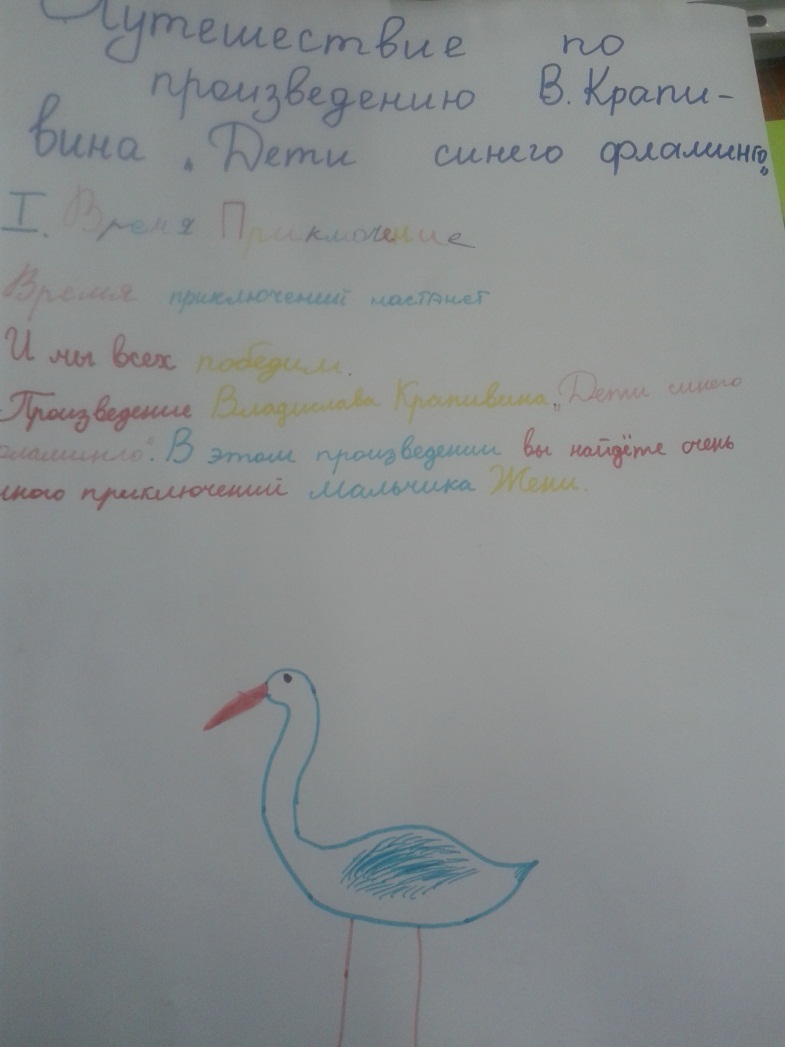 Путешествие по
произведению В. Крапи-
вина „Дети синего фламинго"
I. Время Приключение
Время приключений настанет
И мы всех победим.
Произведение Владислава Крапивина „Дети синего
фламинго". В этом произведении вы найдёте очень
много приключений мальчика Жени.